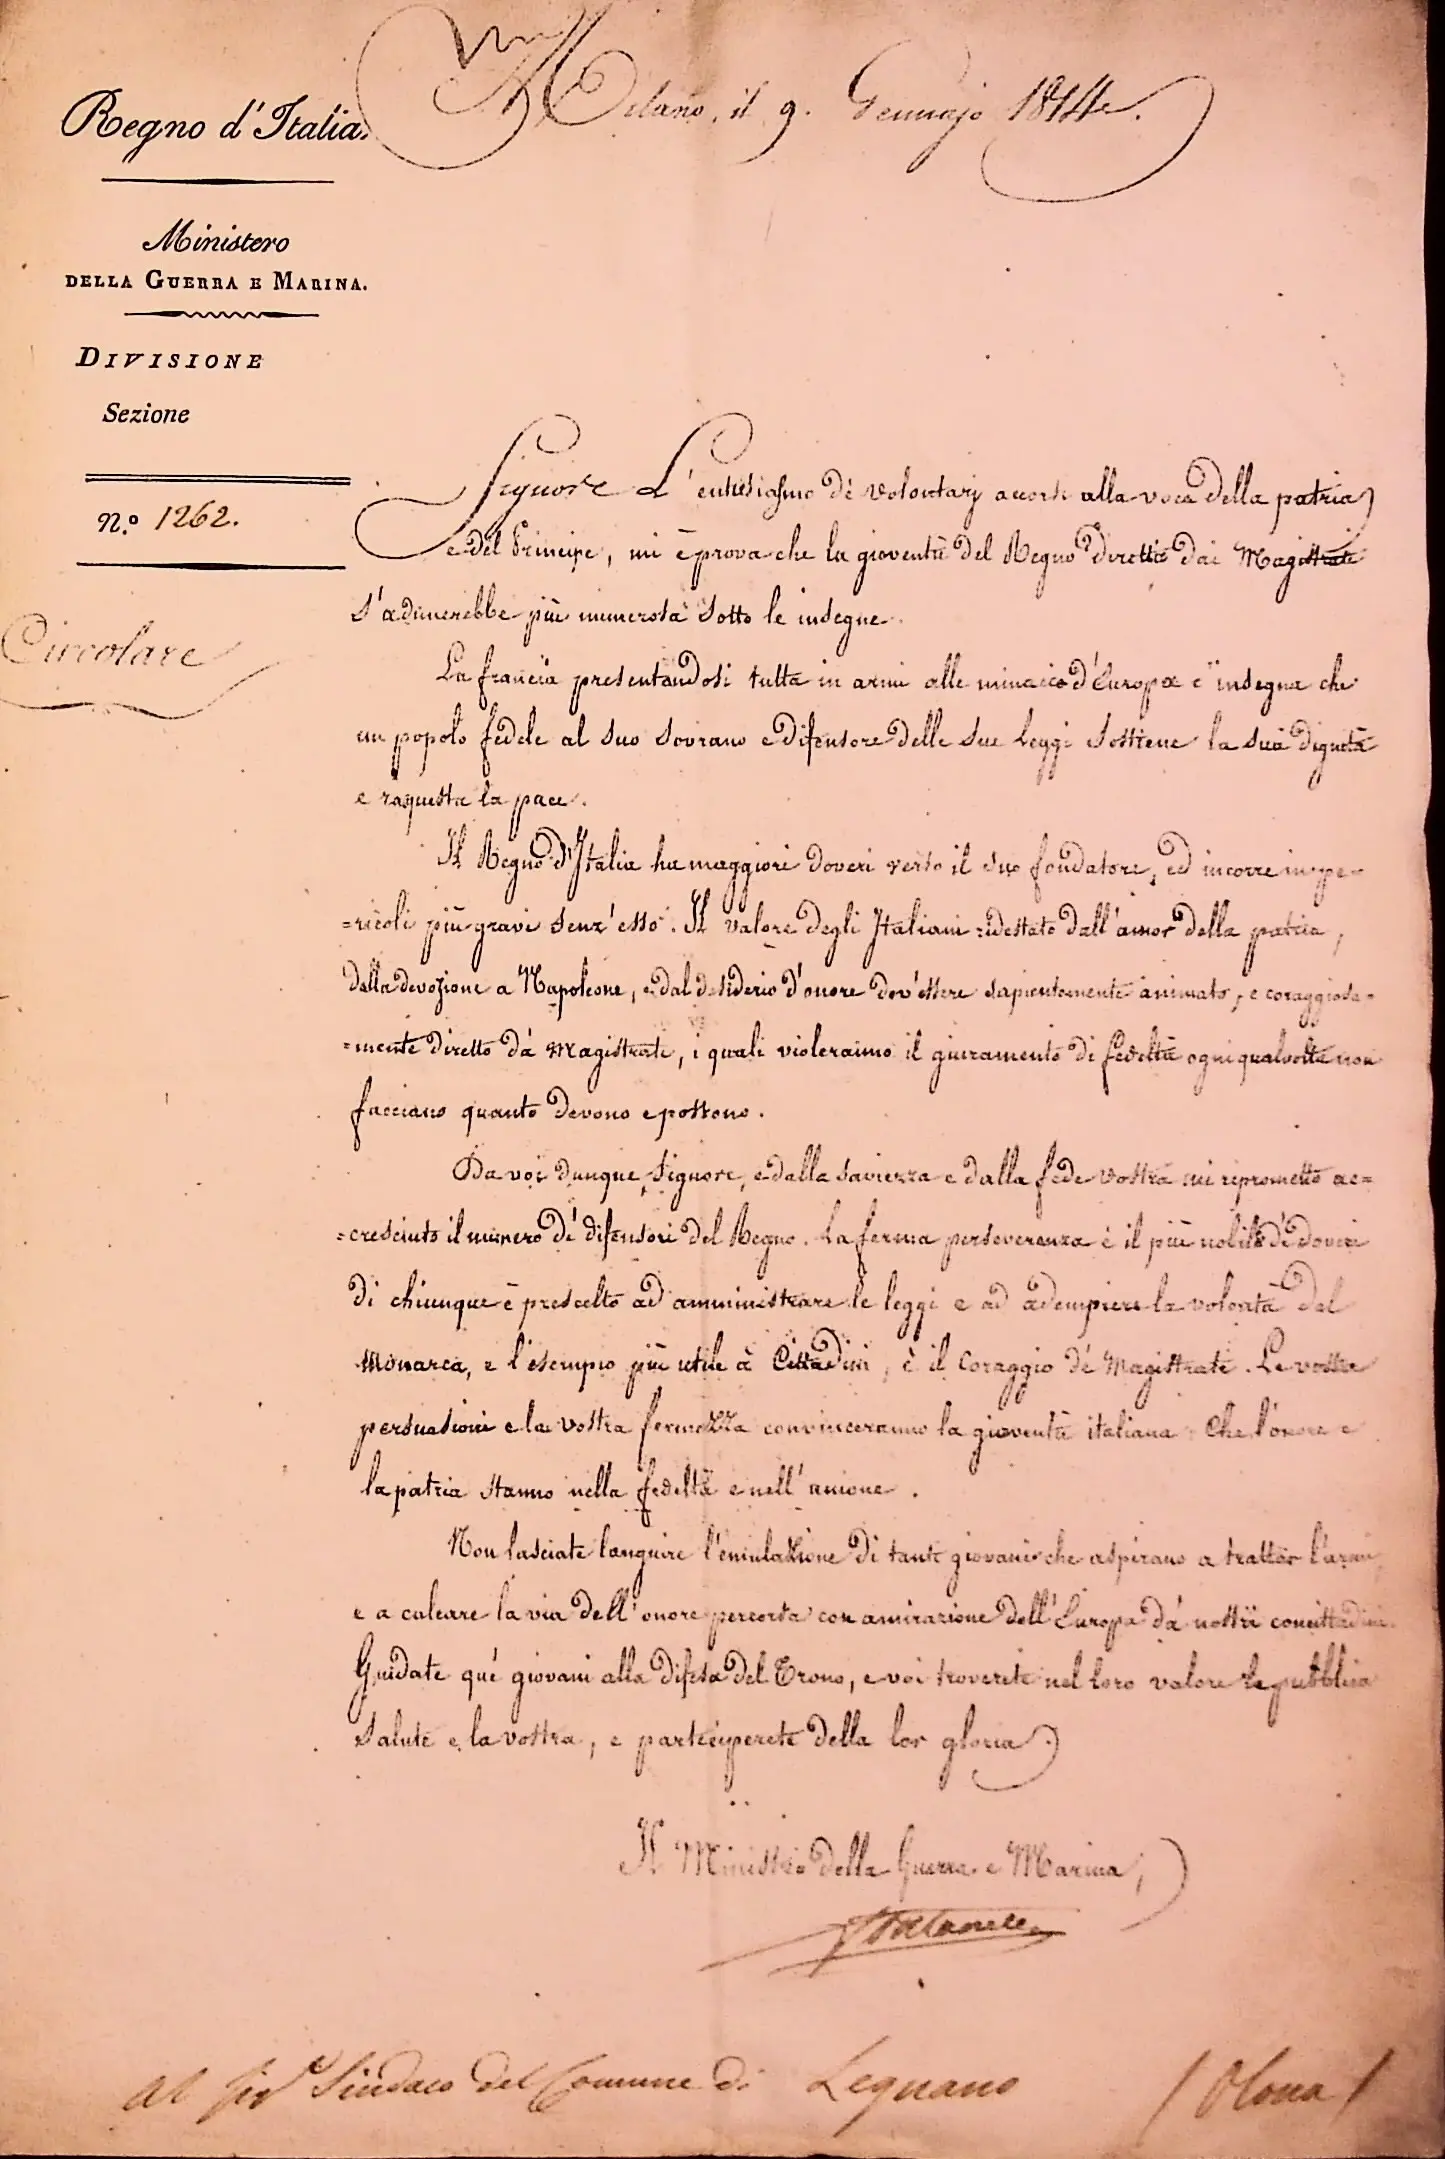 Regno d'Italia.
Milano, il 9. Gennajo 1814.
Ministero
DELLA GUERRA E MARINA.
DIVISIONE
Sezione
N.º 1262.
Circolare
Signore L'entusiasmo dè volontarj accorsi alla voce della patria
e del Principe, mi è prova che la gioventù del Regno diretta dai Magistrati
s'adunerebbe più numerosa sotto le insegne.
La francia presentandosi tutta in armi alle minaccie d'Europa c'insegna che
un popolo fedele al suo sovrano e difensore delle sue leggi sostiene la sua dignità
e raquista la pace.
Il Regno d'Italia ha maggiori doveri verso il suo fondatore, ed incorre in pe=
=ricoli più gravi senz'esso. Il valore degli Italiani ridestato dall'amor della patria,
dalla devozione a Napoleone, e dal desiderio d'onore dev'essere sapientemente animato, e coraggiosa=
=mente diretto dà Magistrati, i quali violeranno il giuramento di fedeltà ogni qualvolta non
facciano quanto devono e possono.
Da voi dunque, Signore, e dalla saviezza e dalla fede vostra mi riprometto ac=
=cresciuto il numero dè difensori del Regno. La ferma perseveranza è il più nobile dè doveri
di chiunque è prescelto ad amministrare le leggi e ad adempiere la volontà del
Monarca, e l'esempio più utile à Cittadini, è il coraggio dè Magistrati. Le vostre
persuasioni e la vostra fermezza convinceranno la gioventù italiana che l'onore e
la patria stanno nella fedeltà e nell'unione.
Non lasciate languire l'emulazione di tanti giovani che aspirano a trattar l'armi,
e a calcare la via dell'onore percorsa con amirazione dell'Europa dà nostri concittadini.
Guidate què giovani alla difesa del Trono, e voi troverete nel loro valore la pubblica
salute e la vostra, e parteciperete della lor gloria.
Il Ministro della Guerra e Marina,
Fontanelli
Al Sigr Sindaco del Comune di Legnano (Olona)